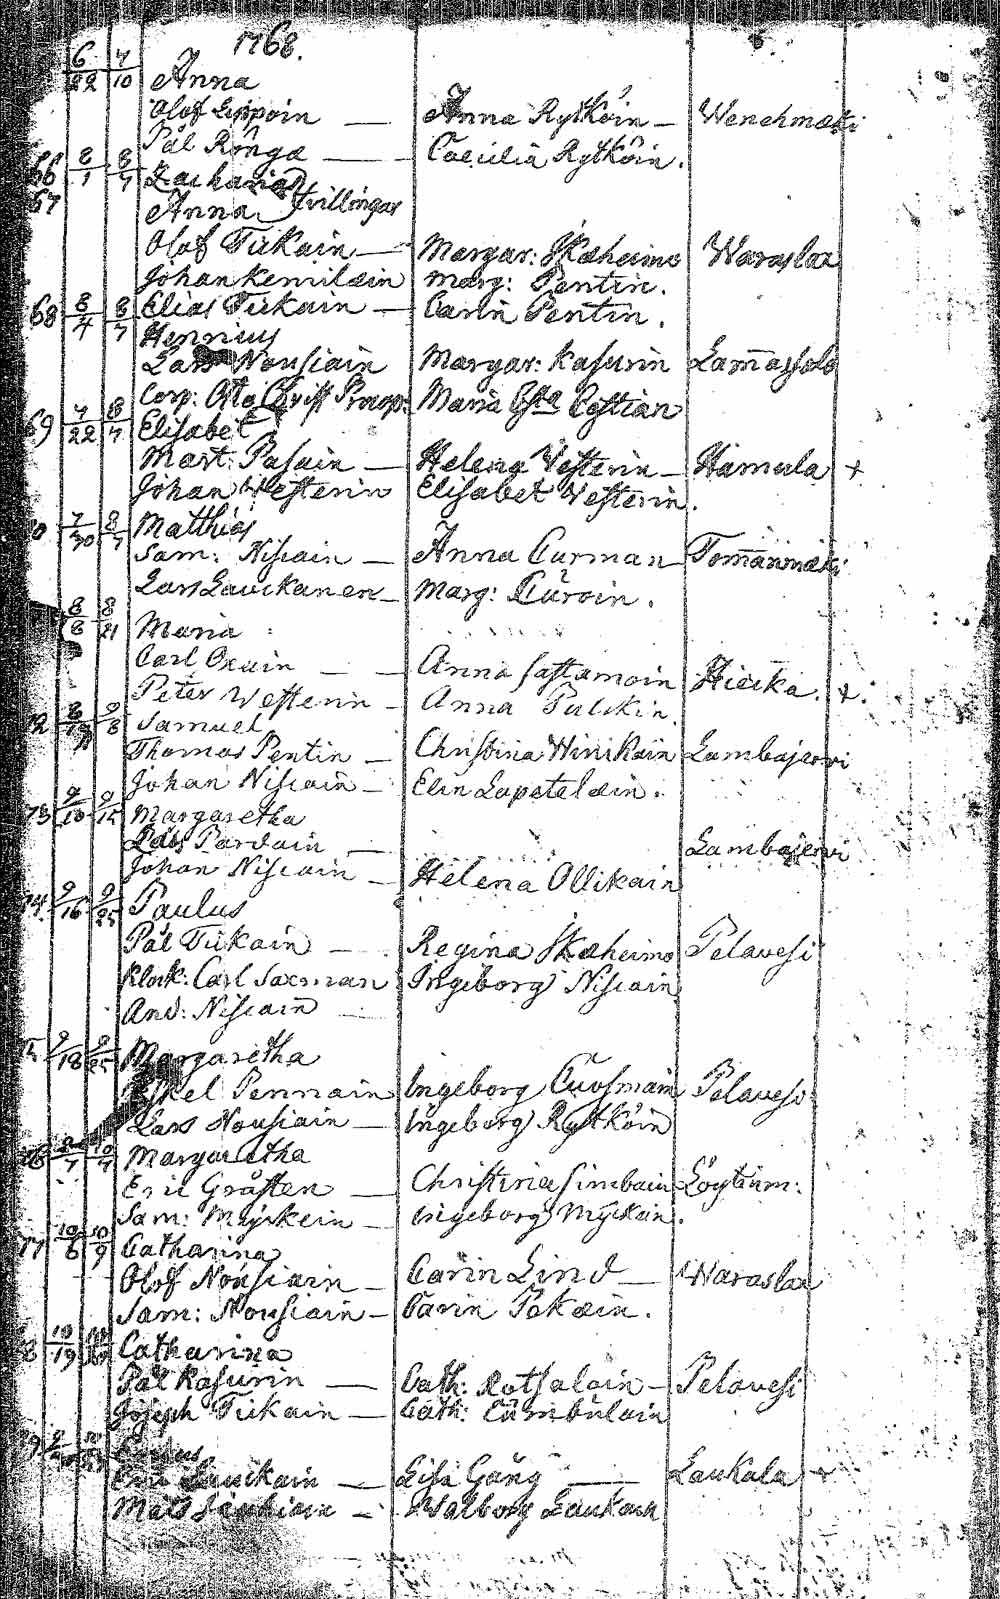 1768.
6/22 7/10 Anna
Olof Lippoin — Anna Rytköin — Wenehmäki
Pål Rönga — Caecilia Rytköin.
66 8/1 8/7 Zacharias
67 Anna Tvillingar
Olof Tiikain — Margar: Skæheimo Waraslax
Johan Kemiläin Marg: Pentin.
68 8/4 8/7 Elias Tiikain — Carin Pentin.
Henricus
Lars Nousiain Margar: Kasurin Lamassalo
Corp: Otto Christ Maria
69 7/22 8/7 Elisabet
Mart: Pasain — Helena Vesterin — Hamula +
Johan Westerin Elisabet Vesterin.
70 7/30 8/7 Matthias
Sam: Nisiain — Anna Curman Tommanmäki
Lars Lauckanen — Marg:
8/8 8/21 Maria
Carl Oxain — Anna Sastamoin Hiecka. +.
Peter Westerin — Anna Pulckin.
72 8/ 9/8 Samuel
Thomas Pentin — Christina Hinikain Lambajervi
Johan Nisiain — Elin Lapeteläin.
73 9/10 9/15 Margaretha
Lars Pardain — Lambajervi
Johan Nisiain — Helena Ollikain
74 9/16 9/25 Paulus
Pål Tiikain — Regina Skæheimo Pelavesi
Klock: Carl Saxman Ingeborg Nisiain
And: Nisiain —
9/18 9/25 Margaretha
Eskel Pennain Ingeborg Cuosmain Pelavesi
Lars Nousiain — Ingeborg Rytköin
76 /7 10/7 Margaretha
Eric Gråsten — Christina Simbain Löytinm:
Sam: Myckein — Ingeborg Myckäin.
77 10/6 10/9 Catharina
Olof Nousiain — Carin Lind — Waraslax
Sam: Nousiain — Carin Tokäin.
78 10/19 Catharina
Pål Kasurin — Cath: Rotsalain — Pelavesi
Joseph Tiikain — Cath: Cumbulain
79
Eric Lauckain — Lisa Gång — Laukala +
Mats — Walborg Laukain